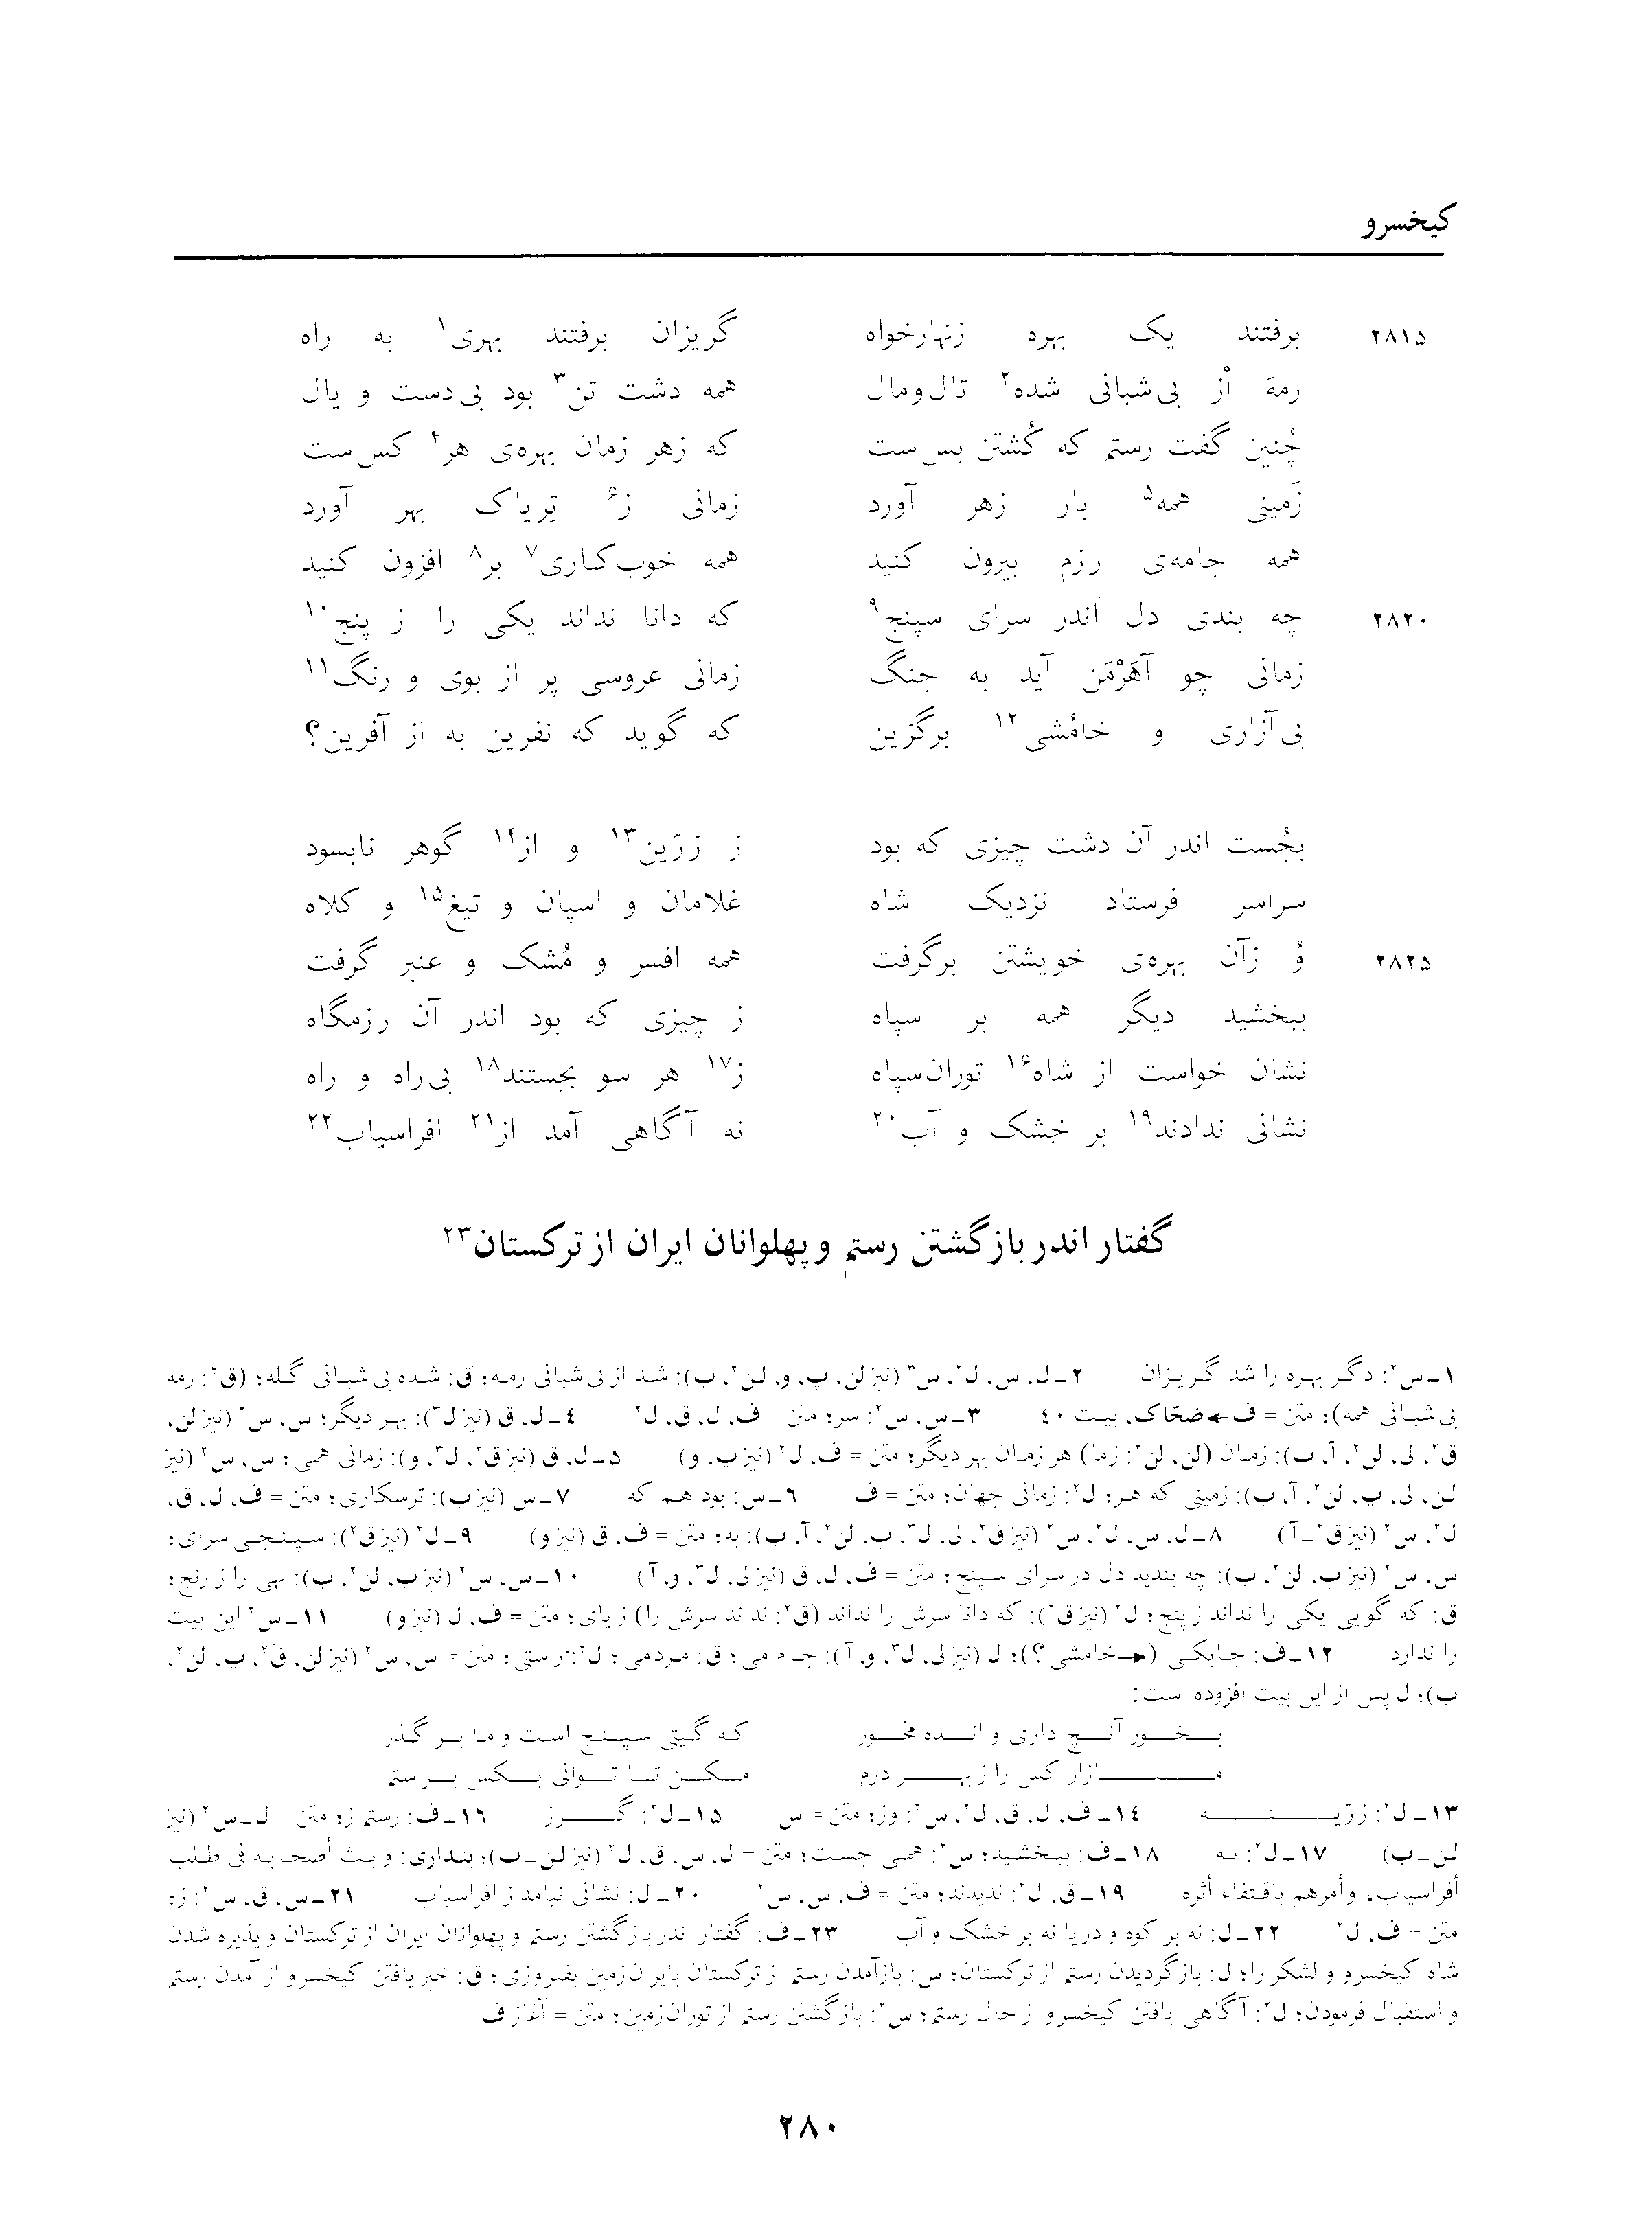 کیخسرو
۲۸۱۵ برفتند یک بهره زنهارخواه گریزان برفتند بهری۱ به راه
رمهَ اُز بی‌شبانی شده۲ تال‌ومال همه دشت تن۳ بود بی‌دست و یال
چُنین گفت رستم که کُشتن بس‌ست که زهر زمان بهره‌ی هر۴ کس‌ست
زَمینی همه۵ بار زهر آورد زمانی ز۶ تِریاک بهر آورد
همه جامه‌ی رزم بیرون کنید همه خوب‌کاری۷ بر۸ افزون کنید
۲۸۲۰ چه بندی دل اندر سرای سپنج۹ که دانا نداند یکی را ز پنج۱۰
زمانی چو آهَرْمَن آید به جنگ زمانی عروسی پر از بوی و رنگ۱۱
بی‌آزاری و خامُشی۱۲ برگزین که گوید که نفرین به از آفرین؟
بجُست اندر آن دشت چیزی که بود ز زرّین۱۳ و از۱۴ گوهر نابسود
سراسر فرستاد نزدیک شاه غلامان و اسپان و تیغ۱۵ و کلاه
۲۸۲۵ وُ زآن بهره‌ی خویشتن برگرفت همه افسر و مُشک و عنبر گرفت
ببخشید دیگر همه بر سپاه ز چیزی که بود اندر آن رزمگاه
نشان خواست از شاه۱۶ توران‌سپاه ز۱۷ هر سو بجستند۱۸ بی‌راه و راه
نشانی ندادند۱۹ بر خشک و آب۲۰ نه آگاهی آمد از۲۱ افراسیاب۲۲
گفتار اندر بازگشتن رستم و پهلوانان ایران از ترکستان۲۳
۱ـ س۲: دگر بهره را شد گریزان ۲ـ ل، س، ل۲، س۳ (نیز لن، پ، و، لن۲، ب): شد از بی‌شبانی رمه؛ ق: شده بی‌شبانی گله؛ (ق۲: رمه
بی‌شبانی همه)؛ متن = ف ← ضحّاک، بیت ۴۰ ۳ـ س، س۲: سر؛ متن = ف، ل، ق، ل۲ ۴ـ ل، ق (نیز ل۳): بهر دیگر؛ س، س۲ (نیز لن،
ق۲، لی، لن۲، آ، ب): زمان (لن، لن۲: زما) هر زمان بهر دیگر؛ متن = ف، ل۲ (نیز پ، و) ۵ـ ل، ق (نیز ق۲، ل۳، و): زمانی همی؛ س، س۲ (نیز
لن، لی، پ، لن۲، آ، ب): زمینی که هر؛ ل۲: زمانی جهان؛ متن = ف ۶ـ س: بود هم که ۷ـ س (نیز ب): ترسکاری؛ متن = ف، ل، ق،
ل۲، س۲ (نیز ق۲ـ آ) ۸ـ ل، س، ل۲، س۲ (نیز ق۲، لی، ل۳، پ، لن۲، آ، ب): به؛ متن = ف، ق (نیز و) ۹ـ ل۲ (نیز ق۲): سپنجی سرای؛
س، س۲ (نیز پ، لن۲، ب): چه بندید دل در سرای سپنج؛ متن = ف، ل، ق (نیز لی، ل۳، و، آ) ۱۰ـ س، س۲ (نیز پ، لن۲، ب): بهی را ز رنج؛
ق: که گویی یکی را نداند ز پنج؛ ل۲ (نیز ق۲): که دانا سرش را نداند (ق۲: نداند سرش را) ز پای؛ متن = ف، ل (نیز و) ۱۱ـ س۲ این بیت
را ندارد ۱۲ـ ف: چابکی (← خامشی ؟)؛ ل (نیز لی، ل۳، و، آ): جام می؛ ق: مردمی؛ ل۲: راستی؛ متن = س، س۲ (نیز لن، ق۲، پ، لن۲،
ب)؛ ل پس از این بیت افزوده است:
بخور آنچ داری و انده مخور که گیتی سپنج است و ما برگذر
میازار کس را ز بهر درم مکن تا توانی بکس بر ستم
۱۳ـ ل۲: زرّینه ۱۴ـ ف، ل، ق، ل۲، س۲: وز؛ متن = س ۱۵ـ ل۲: گرز ۱۶ـ ف: رستم ز؛ متن = ل ـ س۲ (نیز
لن ـ ب) ۱۷ـ ل۲: به ۱۸ـ ف: ببخشید؛ س۲: همی جست؛ متن = ل، س، ق، ل۲ (نیز لن ـ ب)؛ بنداری: و بث أصحابه فی طلب
أفراسیاب، وأمرهم باقتفاء أثره ۱۹ـ ق، ل۲: ندیدند؛ متن = ف، س، س۲ ۲۰ـ ل: نشانی نیامد ز افراسیاب ۲۱ـ س، ق، س۲: ز؛
متن = ف، ل۲ ۲۲ـ ل: نه بر کوه و دریا نه بر خشک و آب ۲۳ـ ف: گفتار اندر بازگشتن رستم و پهلوانان ایران از ترکستان و پذیره شدن
شاه کیخسرو و لشکر را؛ ل: بازگردیدن رستم از ترکستان؛ س: بازآمدن رستم از ترکستان بایران‌زمین بفیروزی؛ ق: خبر یافتن کیخسرو از آمدن رستم
و استقبال فرمودن؛ ل۲: آگاهی یافتن کیخسرو از حال رستم؛ س۲: بازگشتن رستم از توران‌زمین؛ متن = آغاز ف
۲۸۰